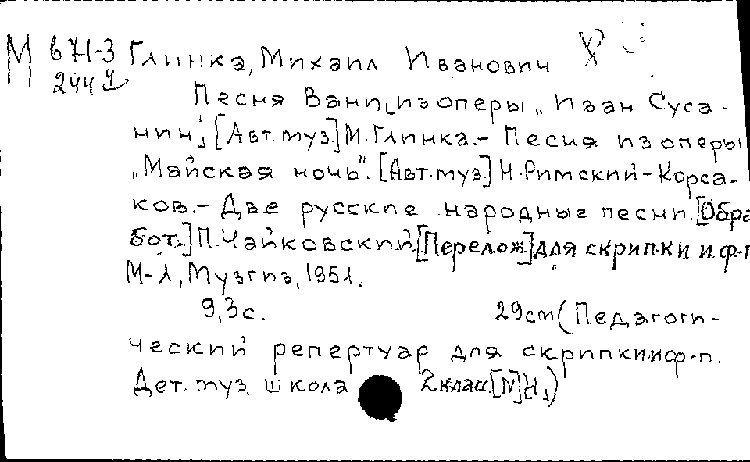 М 671-3 Глинка, Михаил Иванович
244
Песня Вани из оперы „Иван Суса-
нин". [Авт. муз.] М. Глинка. - Песня из оперы
„Майская ночь". [Авт. муз.] Н. Римский-Корса-
ков. - Две русские народные песни. [Обра
бот.] П. Чайковский. [Перелож.] для скрипки и ф-п
М-Л, Музгиз, 1951.
9, 3 с. 29 cm (Педагоги-
ческий репертуар для скрипки и ф-п.
Дет. муз. школа 2 клас. [N]